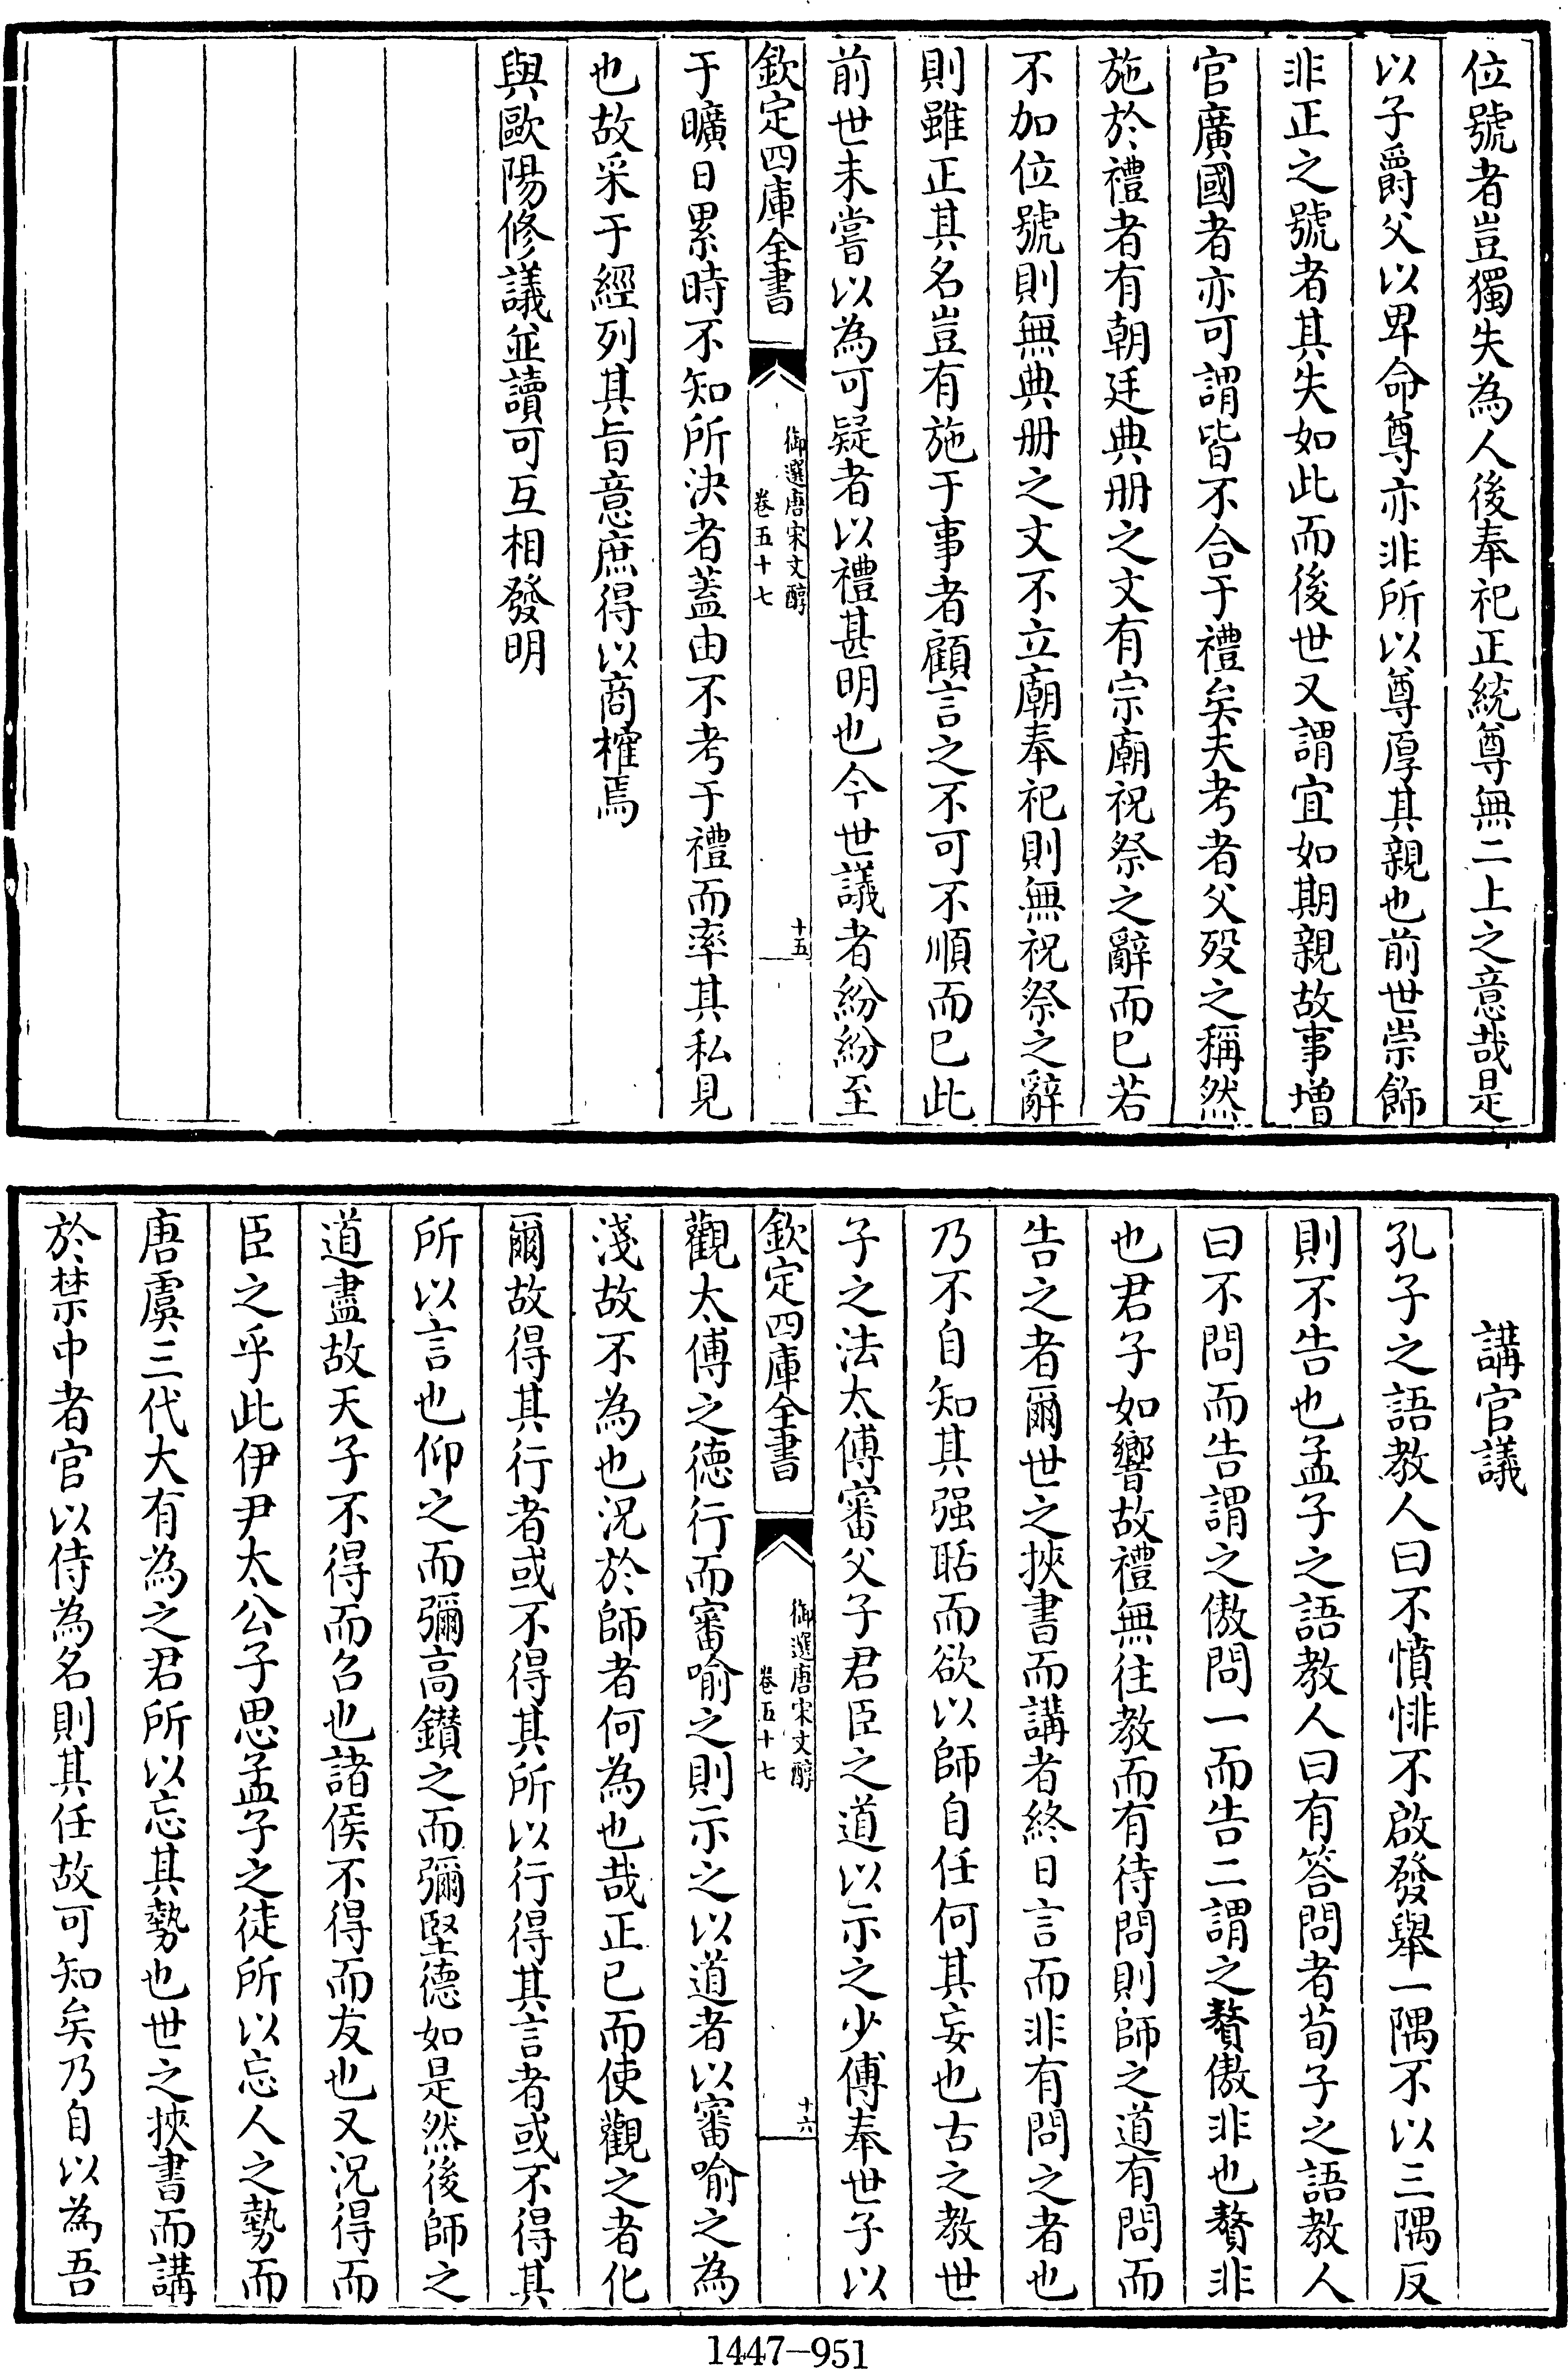 位號者豈獨失為人後奉祀正統尊無二上之意哉是
以子爵父以卑命尊亦非所以尊厚其親也前世崇飾
非正之號者其失如此而後世又謂宜如期親故事增
官廣國者亦可謂皆不合于禮矣夫考者父歿之稱然
施於禮者有朝廷典册之文有宗廟祝祭之辭而已若
不加位號則無典册之文不立廟奉祀則無祝祭之辭
則雖正其名豈有施于事者顧言之不可不順而已此
前世未嘗以為可疑者以禮甚明也今世議者紛紛至
欽定四庫全書
御選唐宋文醇
卷五十七
十五
于曠日累時不知所決者蓋由不考于禮而率其私見
也故采于經列其旨意庶得以商榷焉
與歐陽修議並讀可互相發明
講官議
孔子之語教人曰不憤悱不啟發舉一隅不以三隅反
則不告也孟子之語教人曰有答問者荀子之語教人
曰不問而告謂之傲問一而告二謂之贅傲非也贅非
也君子如響故禮無往教而有待問則師之道有問而
告之者爾世之挾書而講者終日言而非有問之者也
乃不自知其强聒而欲以師自任何其妄也古之教世
子之法太傅審父子君臣之道以示之少傅奉世子以
欽定四庫全書
御選唐宋文醇
卷五十七
十六
觀太傅之德行而審喻之則示之以道者以審喻之為
淺故不為也況於師者何為也哉正已而使觀之者化
爾故得其行者或不得其所以行得其言者或不得其
所以言也仰之而彌高鑽之而彌堅德如是然後師之
道盡故天子不得而召也諸侯不得而友也又況得而
臣之乎此伊尹太公子思孟子之徒所以忘人之勢而
唐虞三代大有為之君所以忘其勢也世之挾書而講
於禁中者官以侍為名則其任故可知矣乃自以為吾
1447-951